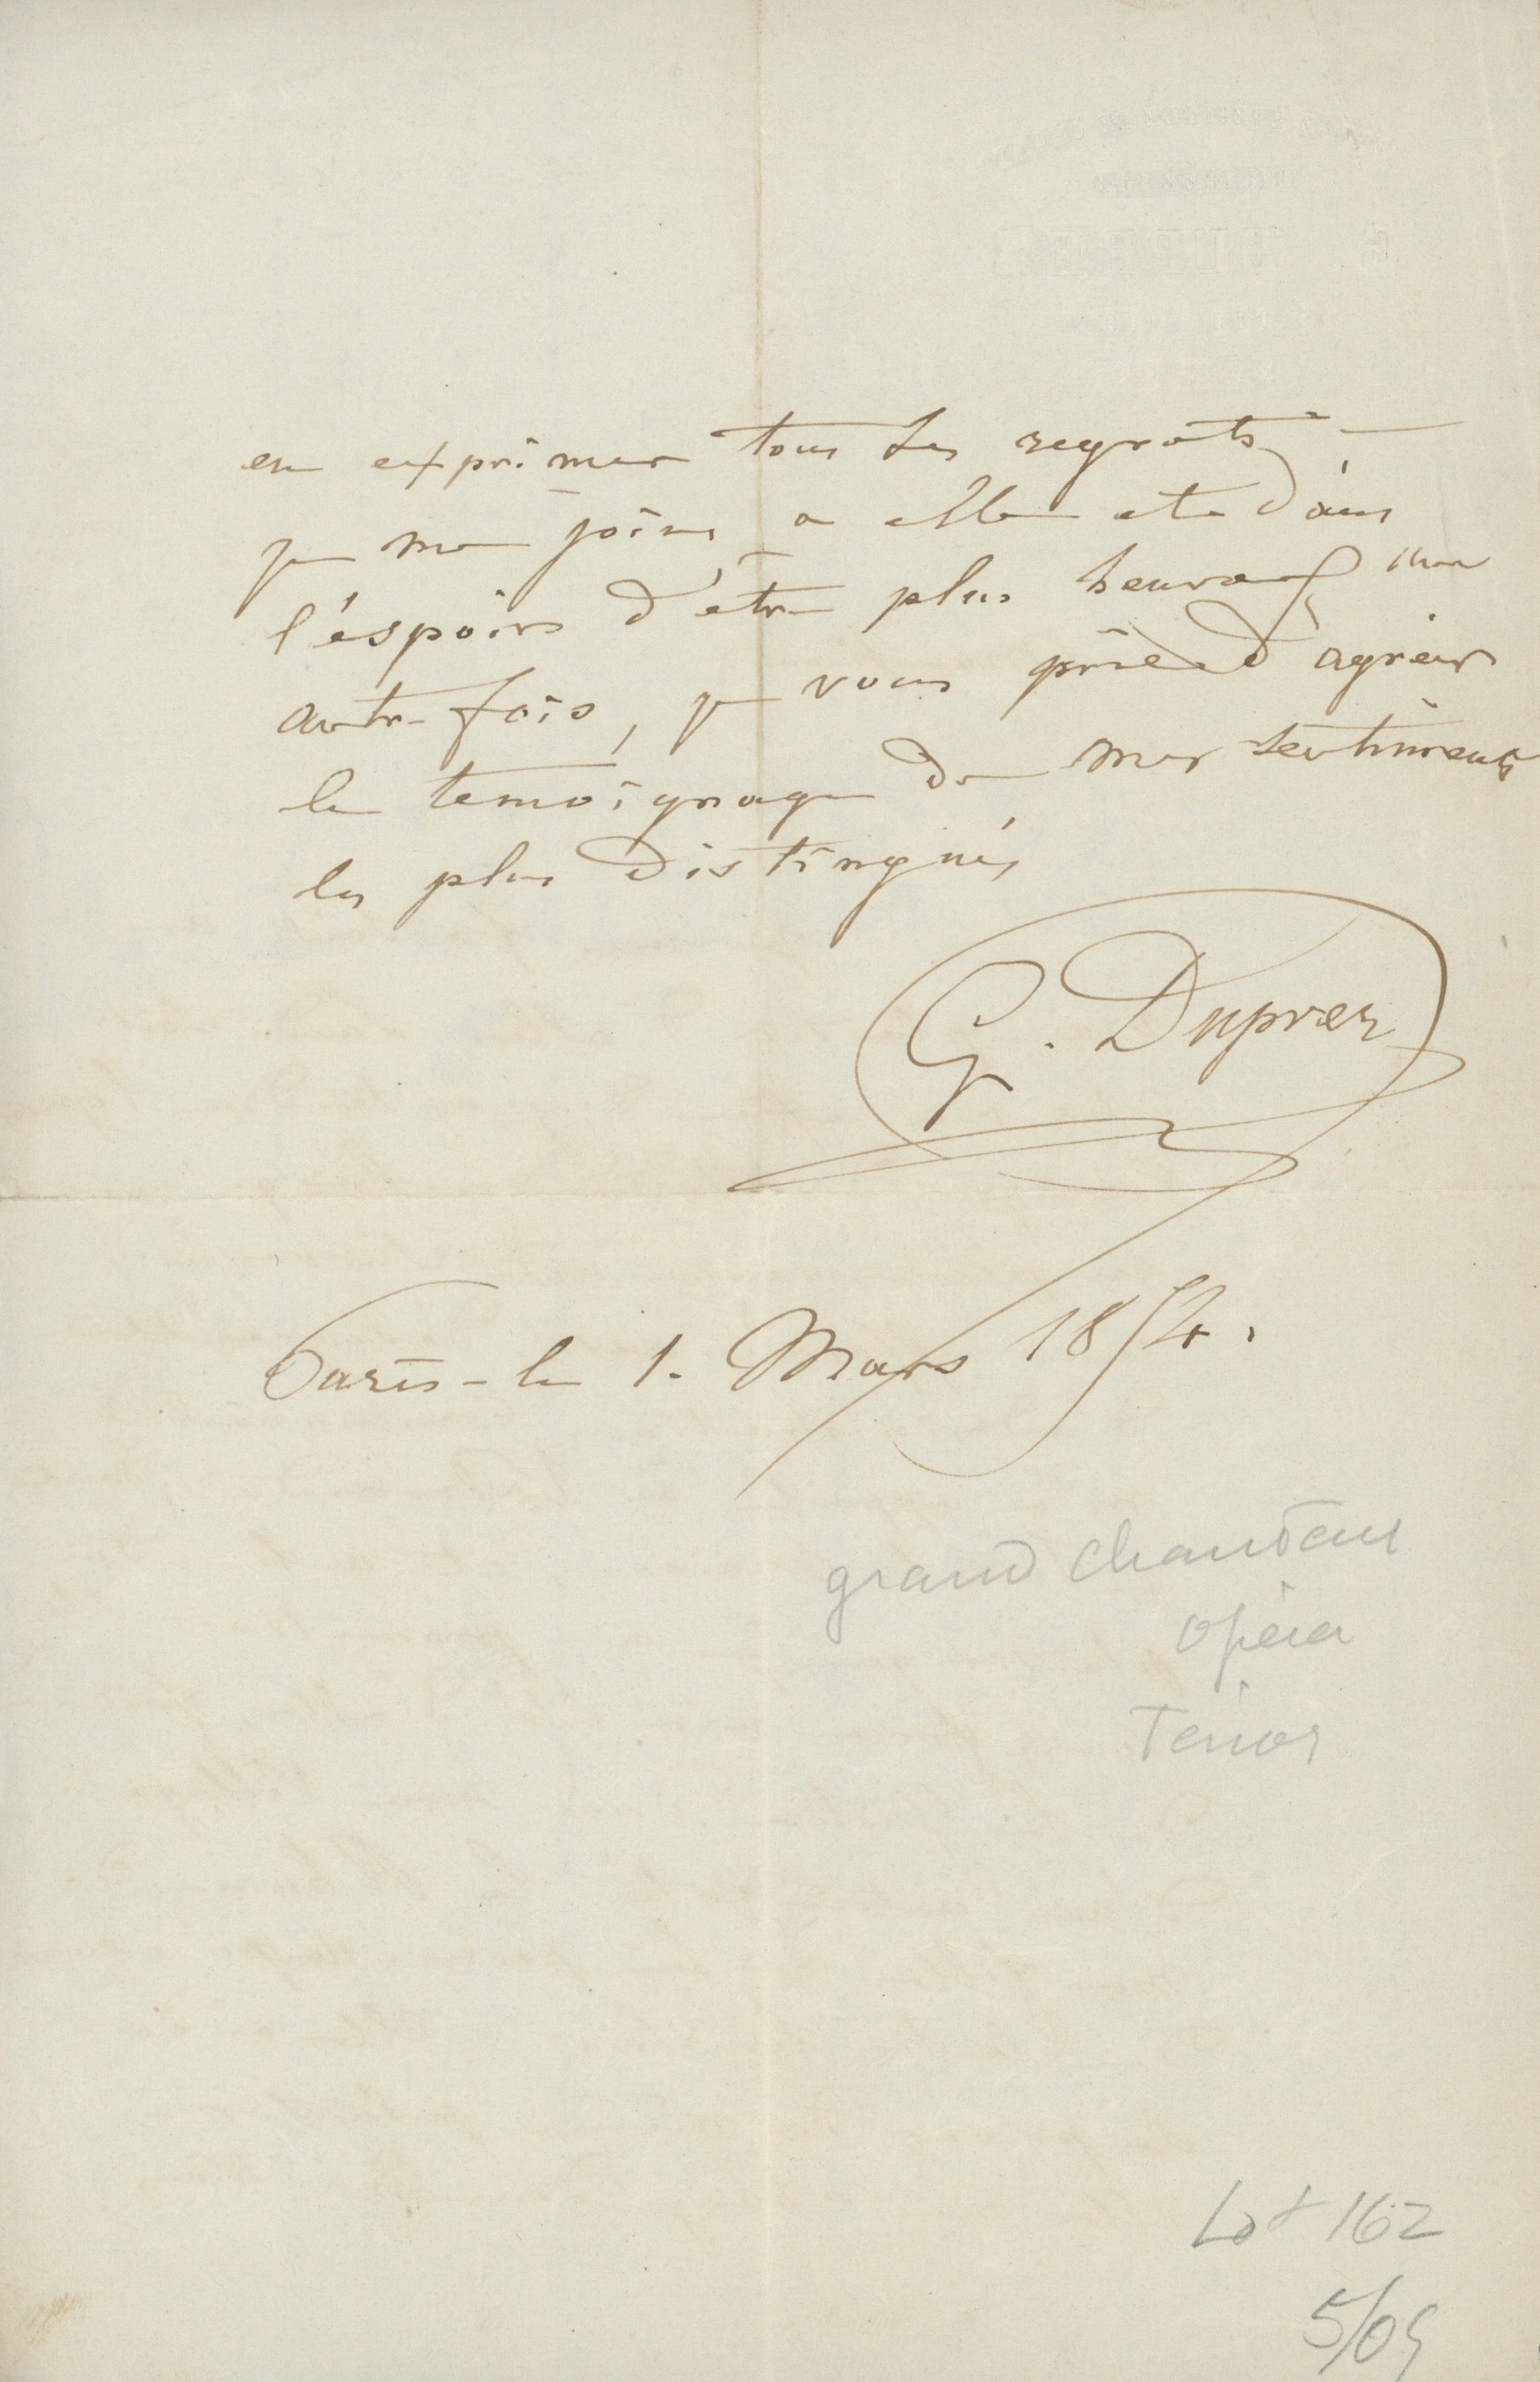 en exprimer tous ses regrets —
je me joins a elle et dans
l'éspoir d'être plus heureux une
autre fois, je vous prie d'agréer
le temoignage de mes sentiments
les plus distingués
G. Duprez
Paris - le 1. Mars 1854.
grand chanteur
opéra
Ténor
Lot 162
5/05